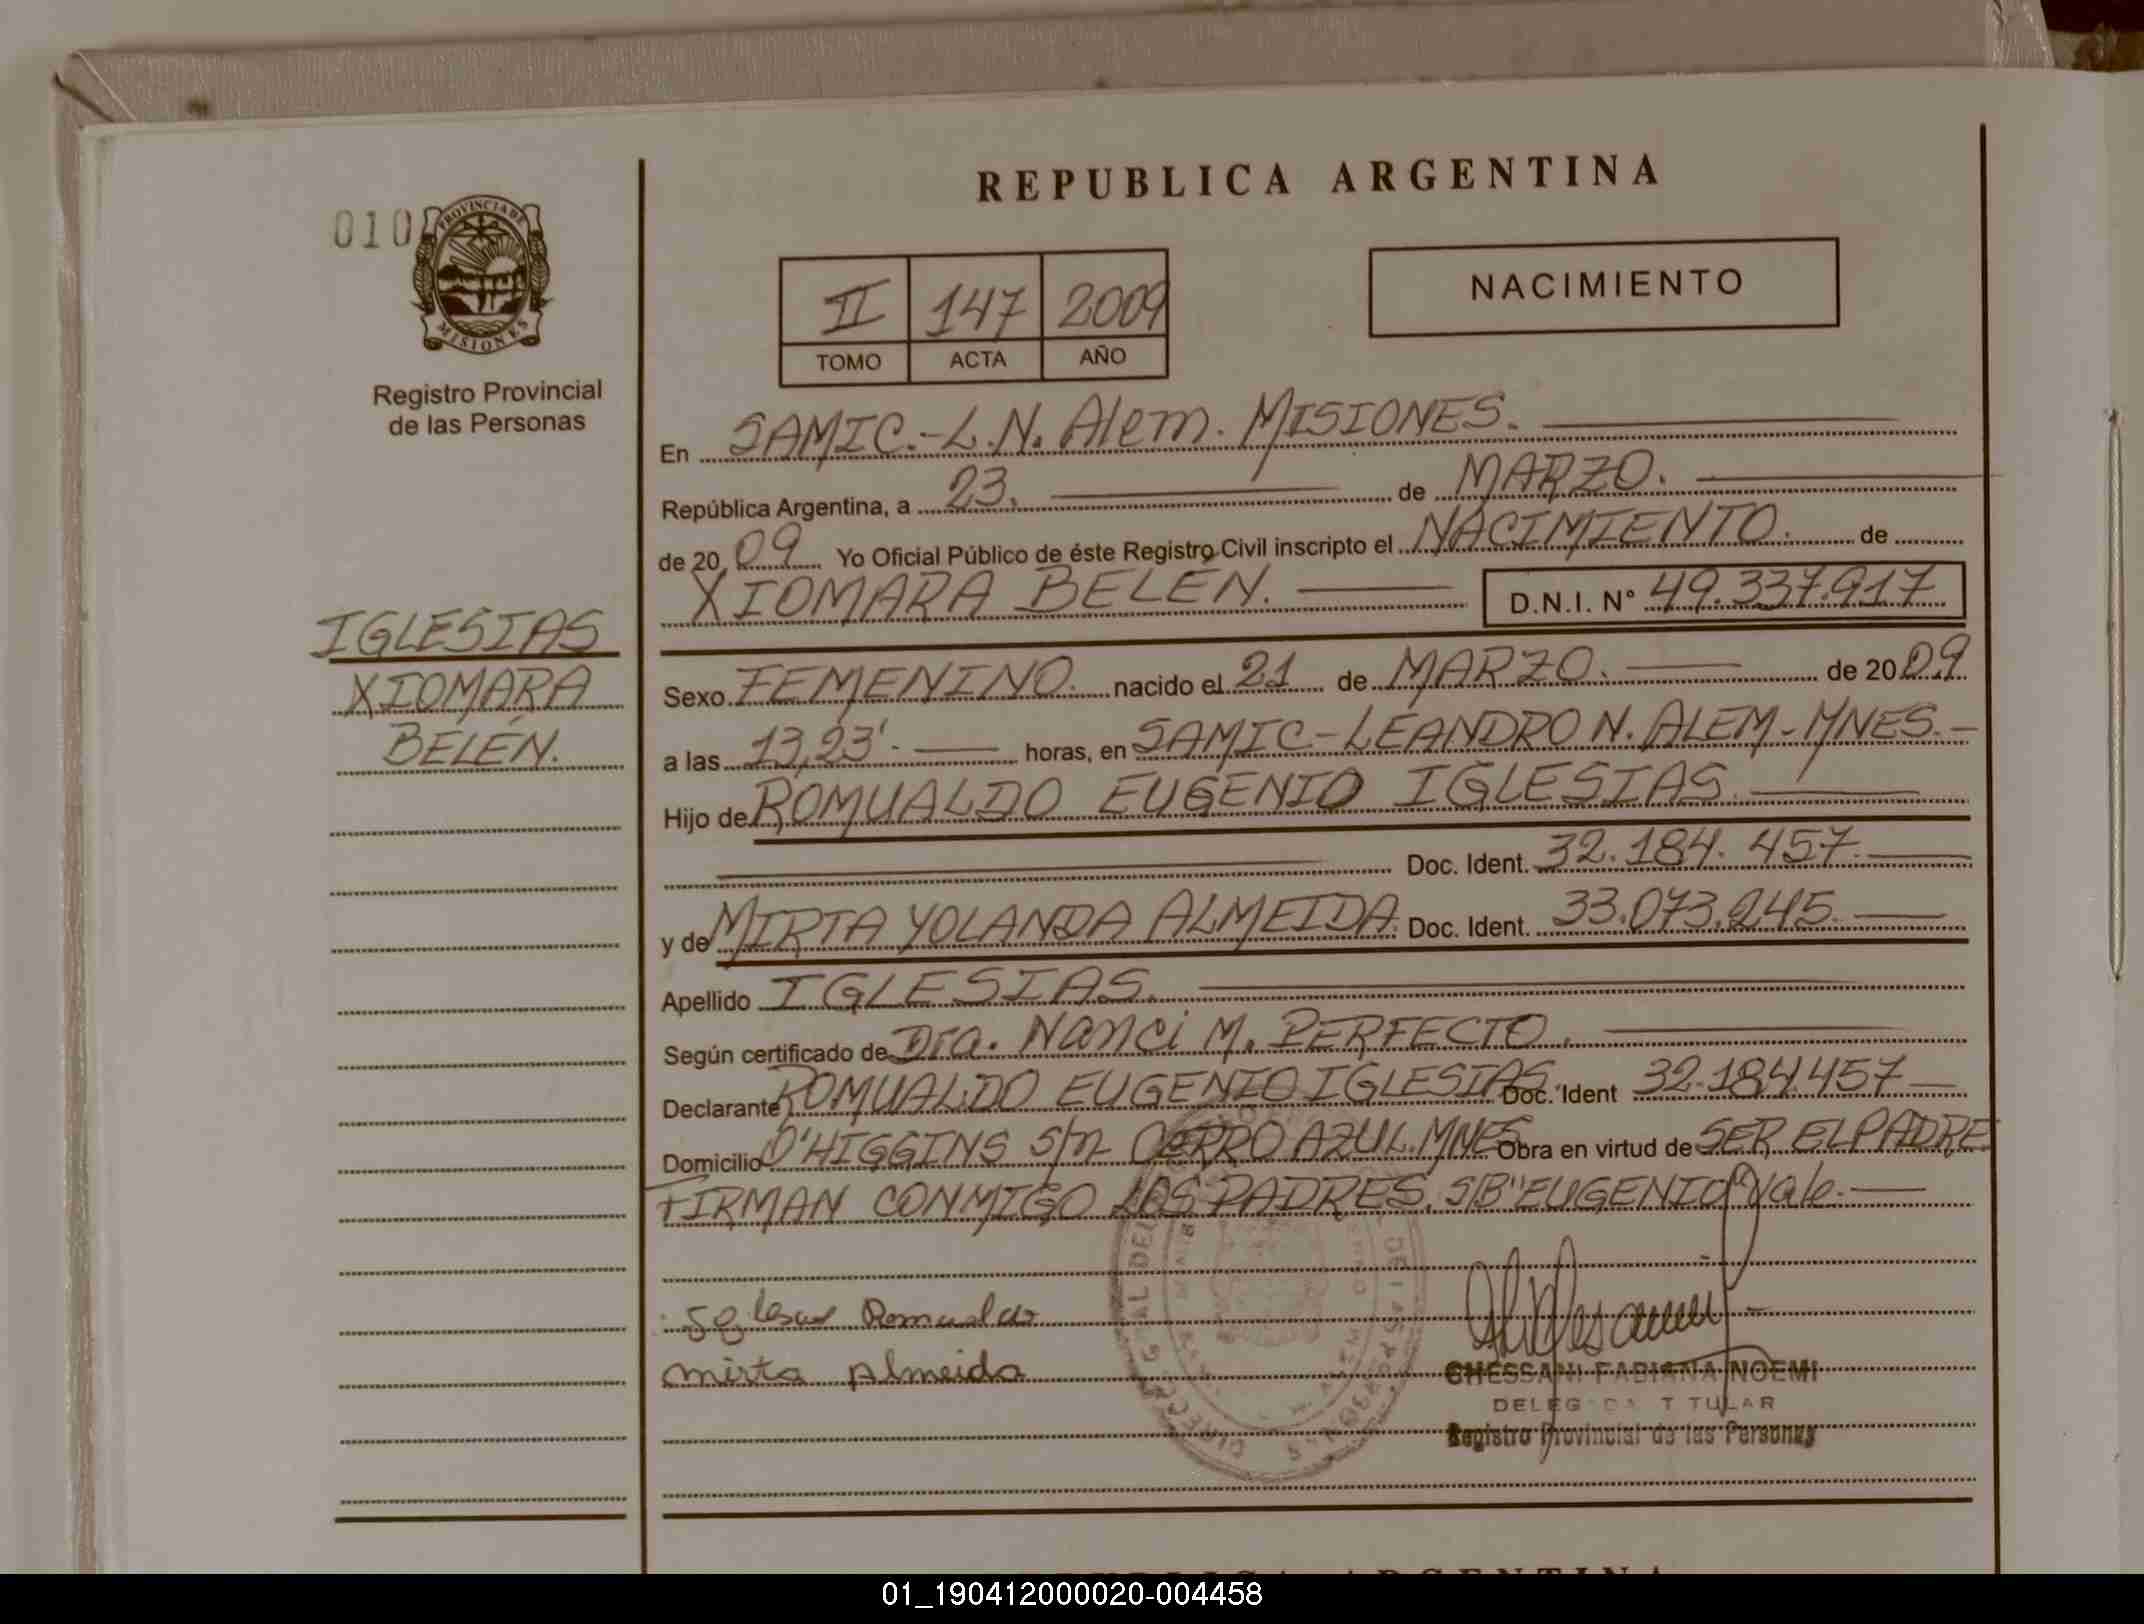 REPUBLICA ARGENTINA
010
PROVINCIA DE
MISIONES
Registro Provincial
de las Personas
II 147 2009
TOMO ACTA AÑO
NACIMIENTO
En SAMIC.-L.N. Alem. MISIONES.
República Argentina, a 23. de MARZO.
de 2009 Yo Oficial Público de éste Registro Civil inscripto el NACIMIENTO. de
XIOMARA BELÉN. D.N.I. N° 49.337.917
IGLESIAS
XIOMARA
BELÉN.
Sexo FEMENINO. nacido el 21 de MARZO. de 2009.
a las 13,23'. horas, en SAMIC-LEANDRO N. ALEM-MNES.-
Hijo de ROMUALDO EUGENIO IGLESIAS.
Doc. Ident. 32.184.457.
y de MIRTA YOLANDA ALMEIDA. Doc. Ident. 33.073.245.
Apellido IGLESIAS.
Según certificado de Dra. Nanci M. PERFECTO.
Declarante ROMUALDO EUGENIO IGLESIAS. Doc. Ident 32.184.457
Domicilio O'HIGGINS s/n CERRO AZUL.MNES Obra en virtud de SER EL PADRE
FIRMAN CONMIGO LOS PADRES. S/B"EUGENIO"Vale.
Iglesias Romualdo
mirta Almeida
GHESSANI FABIANA NOEMI
DELEGADA TITULAR
Registro Provincial de las Personas
REPUBLICA ARGENTINA
01_190412000020-004458